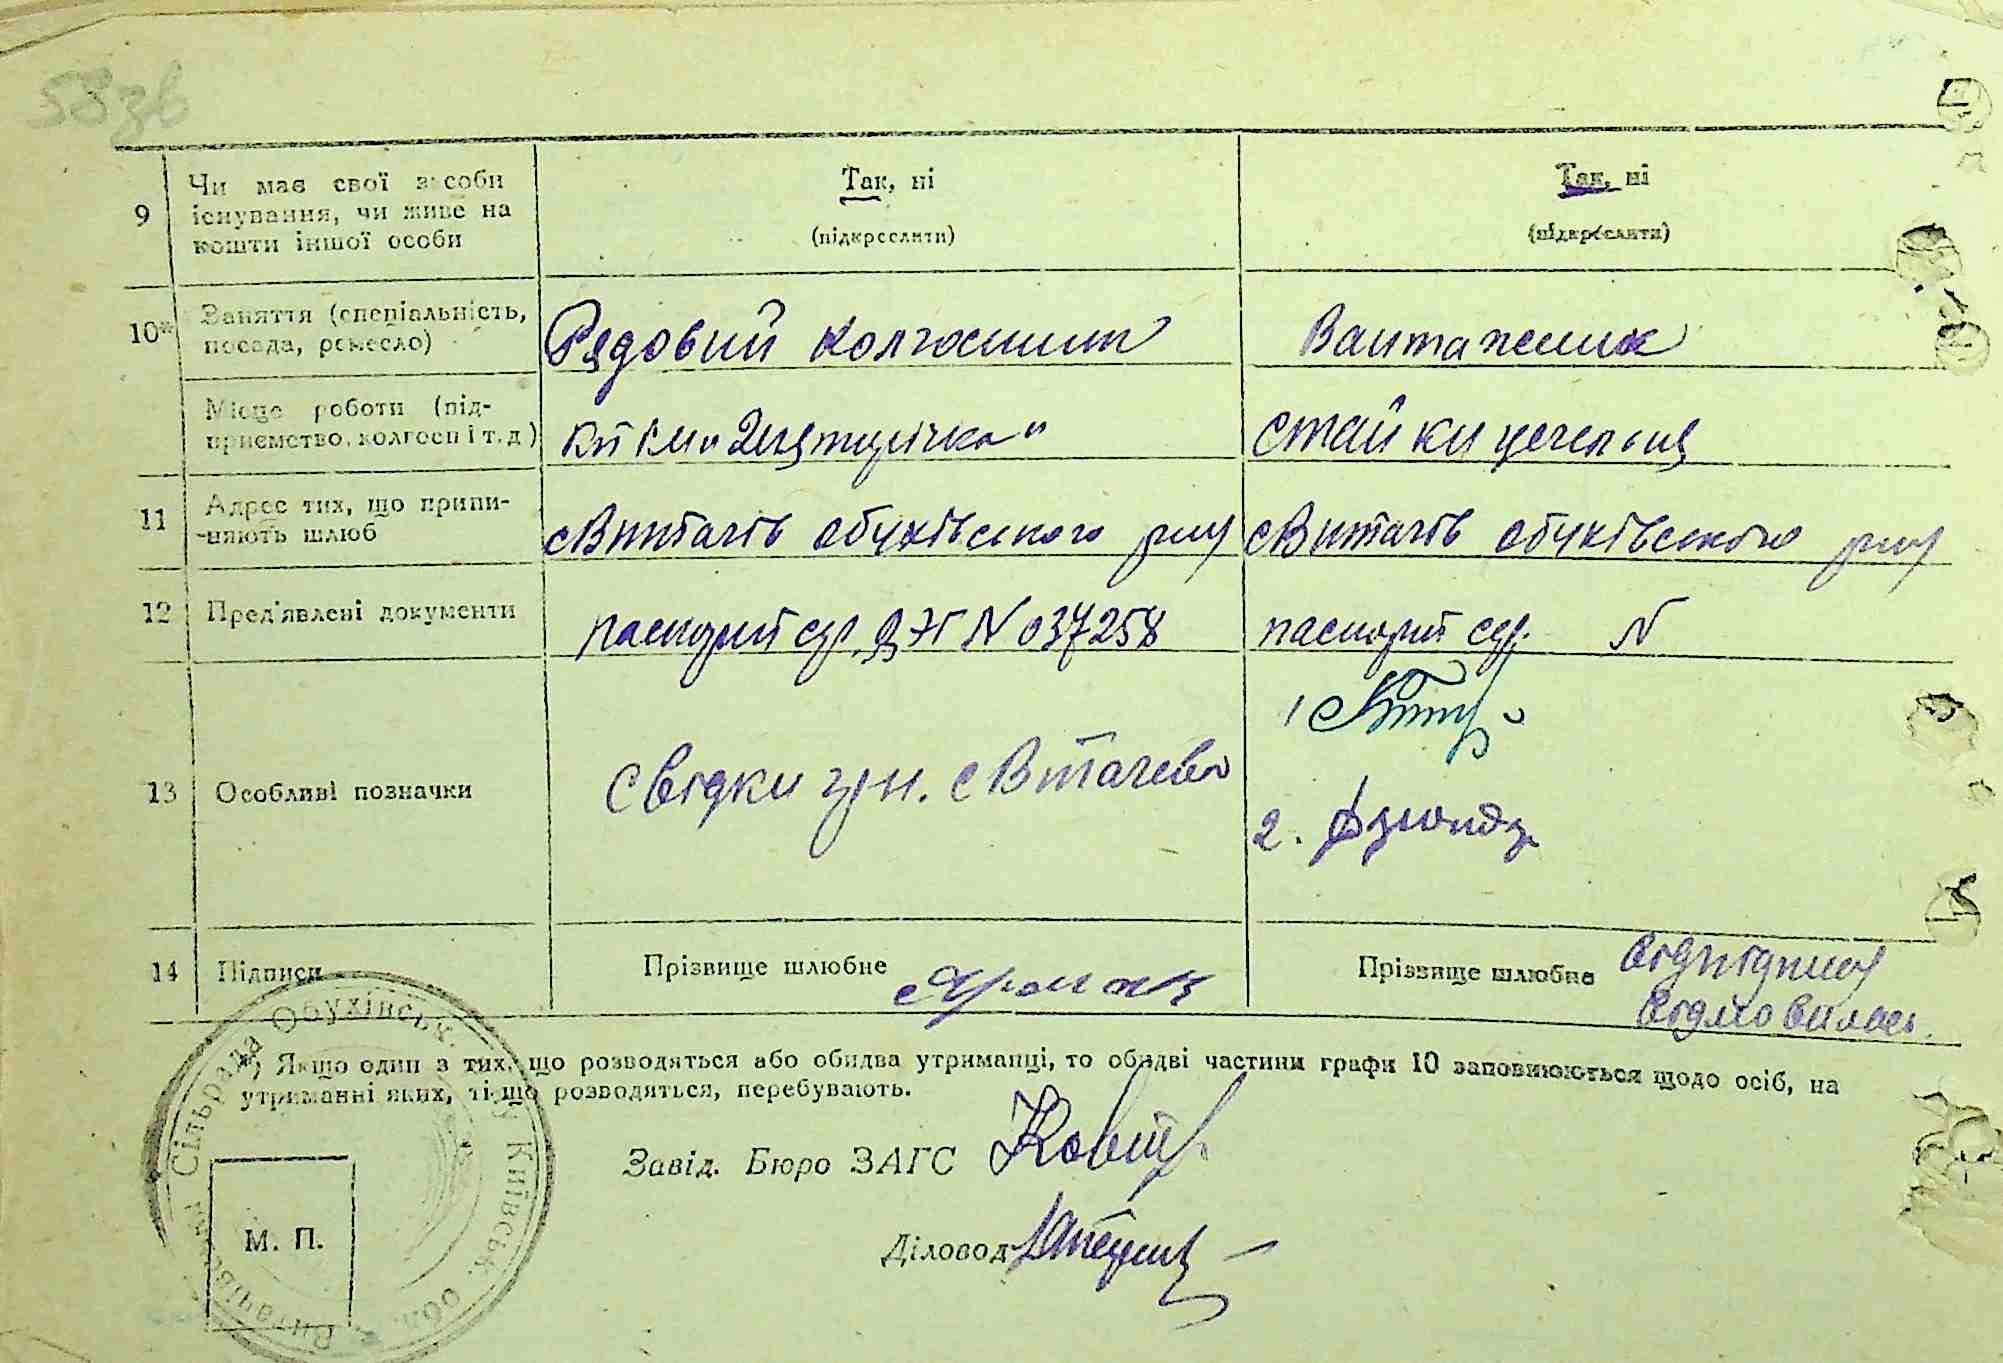 58зв
9 Чи має свої засоби існування, чи живе на кошти іншої особи
Так, ні
(підкреслити)
Так, ні
(підкреслити)
10* Заняття (спеціальність, посада, ремесло)
Рядовий колгоспник
Вантажник
Місце роботи (підприємство, колгосп і т. д.)
Стайки цегельня
11 Адрес тих, що припиняють шлюб
с Витачів Обухівського р-ну
с Витачів Обухівського р-ну
12 Пред'явлені документи
паспорт сер. N 037258
паспорт сер. N
13 Особливі позначки
Свідки с Витачева
1
2.
14 Підписи
Прізвище шлюбне
Прізвище шлюбне від підпису
відмовилась.
*) Якщо один з тих, що розводяться або обидва утриманці, то обидві частини графи 10 заповнюються щодо осіб, на
утриманні яких, ті що розводяться, перебувають.
Завід. Бюро ЗАГС
Діловод
М. П.
Сільрада Обухівськ. Київськ. обл.